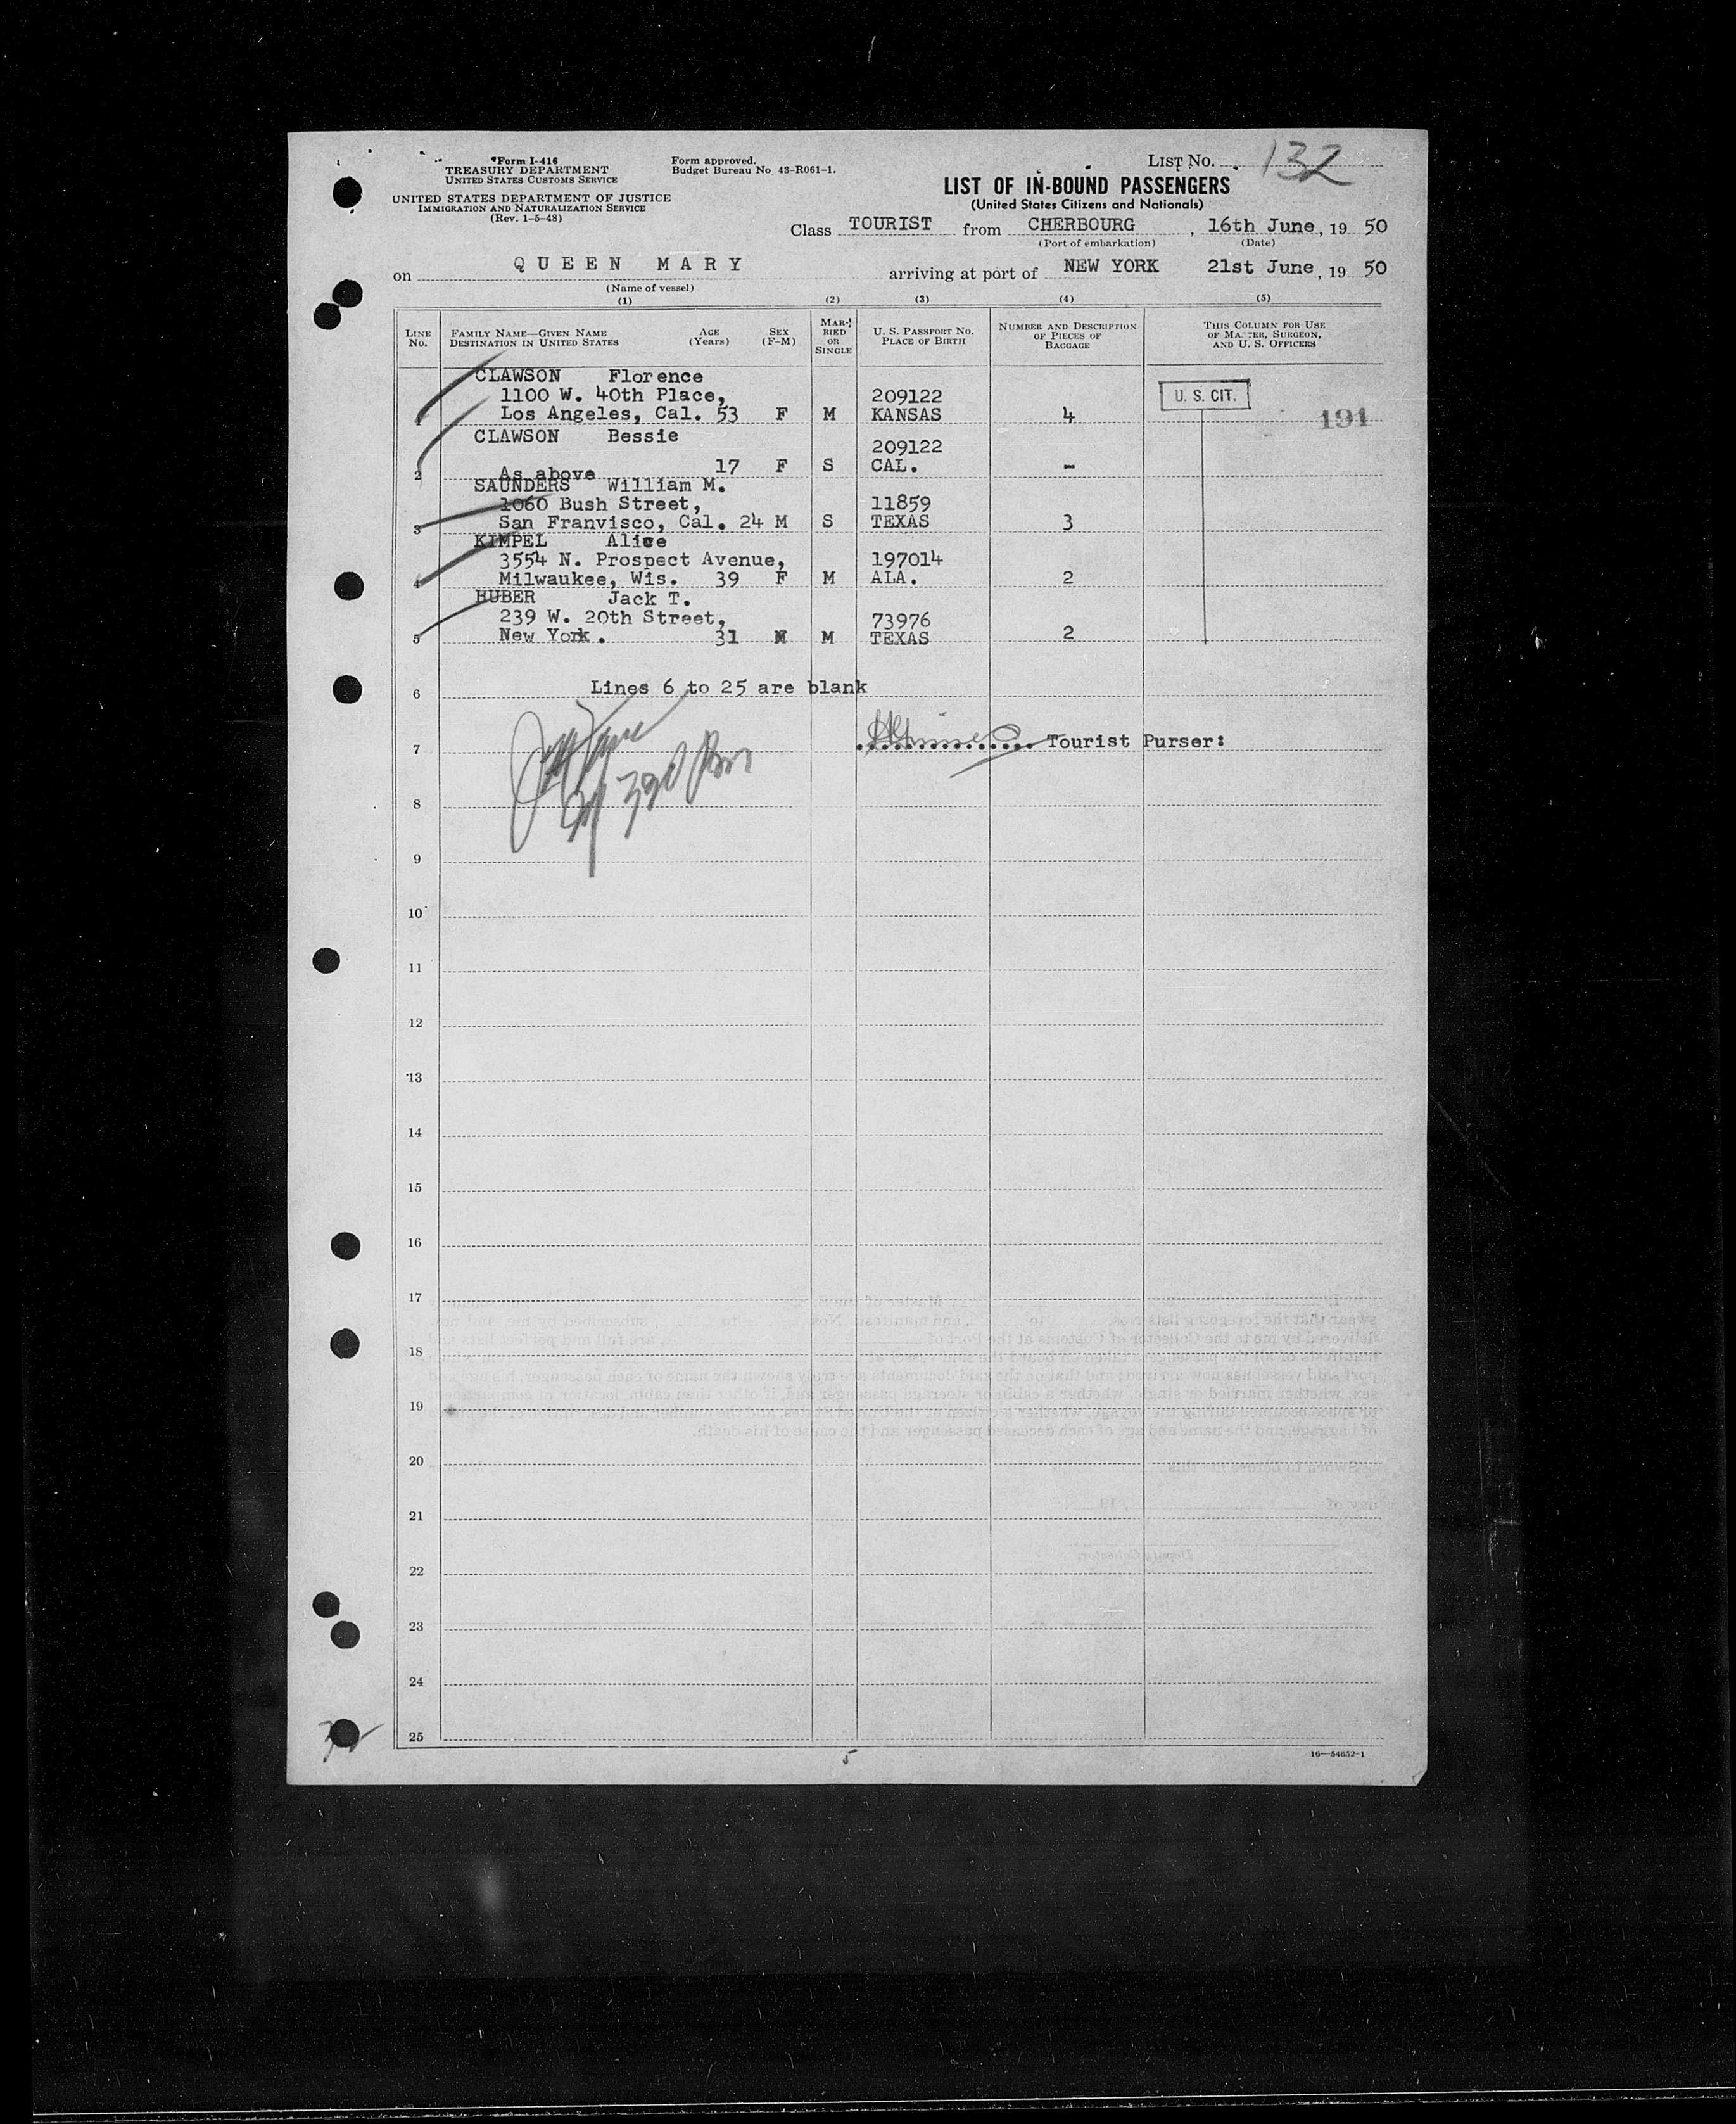 Form I-416
TREASURY DEPARTMENT
UNITED STATES CUSTOMS SERVICE
UNITED STATES DEPARTMENT OF JUSTICE
IMMIGRATION AND NATURALIZATION SERVICE
(Rev. 1-5-48)
Form approved.
Budget Bureau No. 43-R061-1.
LIST NO. 132
LIST OF IN-BOUND PASSENGERS
(United States Citizens and Nationals)
Class TOURIST from CHERBOURG, 16th June, 19 50
(Port of embarkation) (Date)
on QUEEN MARY arriving at port of NEW YORK 21st June, 19 50
(Name of vessel)
(1) (2) (3) (4) (5)
LINE NO. FAMILY NAME—GIVEN NAME DESTINATION IN UNITED STATES AGE (Years) SEX (F-M) MARRIED OR SINGLE U. S. PASSPORT NO. PLACE OF BIRTH NUMBER AND DESCRIPTION OF PIECES OF BAGGAGE THIS COLUMN FOR USE OF MASTER, SURGEON, AND U. S. OFFICERS
CLAWSON Florence
1100 W. 40th Place, 209122 U. S. CIT.
1 Los Angeles, Cal. 53 F M KANSAS 4 191
CLAWSON Bessie
209122
2 As above 17 F S CAL. -
SAUNDERS William M.
1060 Bush Street, 11859
3 San Franvisco, Cal. 24 M S TEXAS 3
KIMPEL Alice
3554 N. Prospect Avenue, 197014
4 Milwaukee, Wis. 39 F M ALA. 2
HUBER Jack T.
239 W. 20th Street, 73976
5 New York. 31 M M TEXAS 2
6 Lines 6 to 25 are blank
7 Tourist Purser:
8
9
10
11
12
13
14
15
16
17
18
19
20
21
22
23
24
25
5
16—54652-1